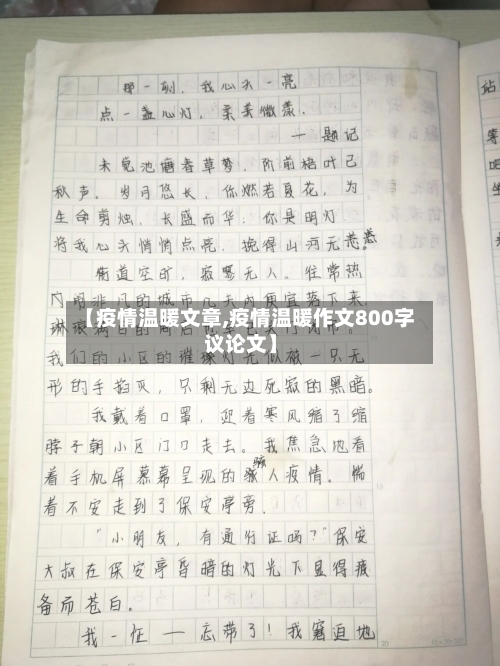 那一刻，我心头一亮
点一盏心灯，柔美微漾．
——题记
未觉池塘春草梦，阶前梧叶已
秋声。岁月悠长，你燃若夏花，为
生命剪烛，长盛而华，你是明灯
将我心头悄悄点亮，挽得山河无恙。
街道空旷，寂寥无人。往常热
闹非凡的城市几天内便宜落下来.
【疫情温暖文章,疫情温暖作文800字
议论文】
我们的小区的璀璨灯光似被一只无
形的手掐灭，只剩无边死寂的黑暗。
我戴着口罩，迎着寒风缩了缩
脖子朝小区门口走去。我焦急地看
着手机屏幕幕呈现的骇人疫情。惴
着不安走到了保安亭旁．
“小朋友，有通行证吗？”保安
大叔在保安亭昏暗的灯光下显得疲
备而苍白。
我一怔——忘带了！我窘迫地